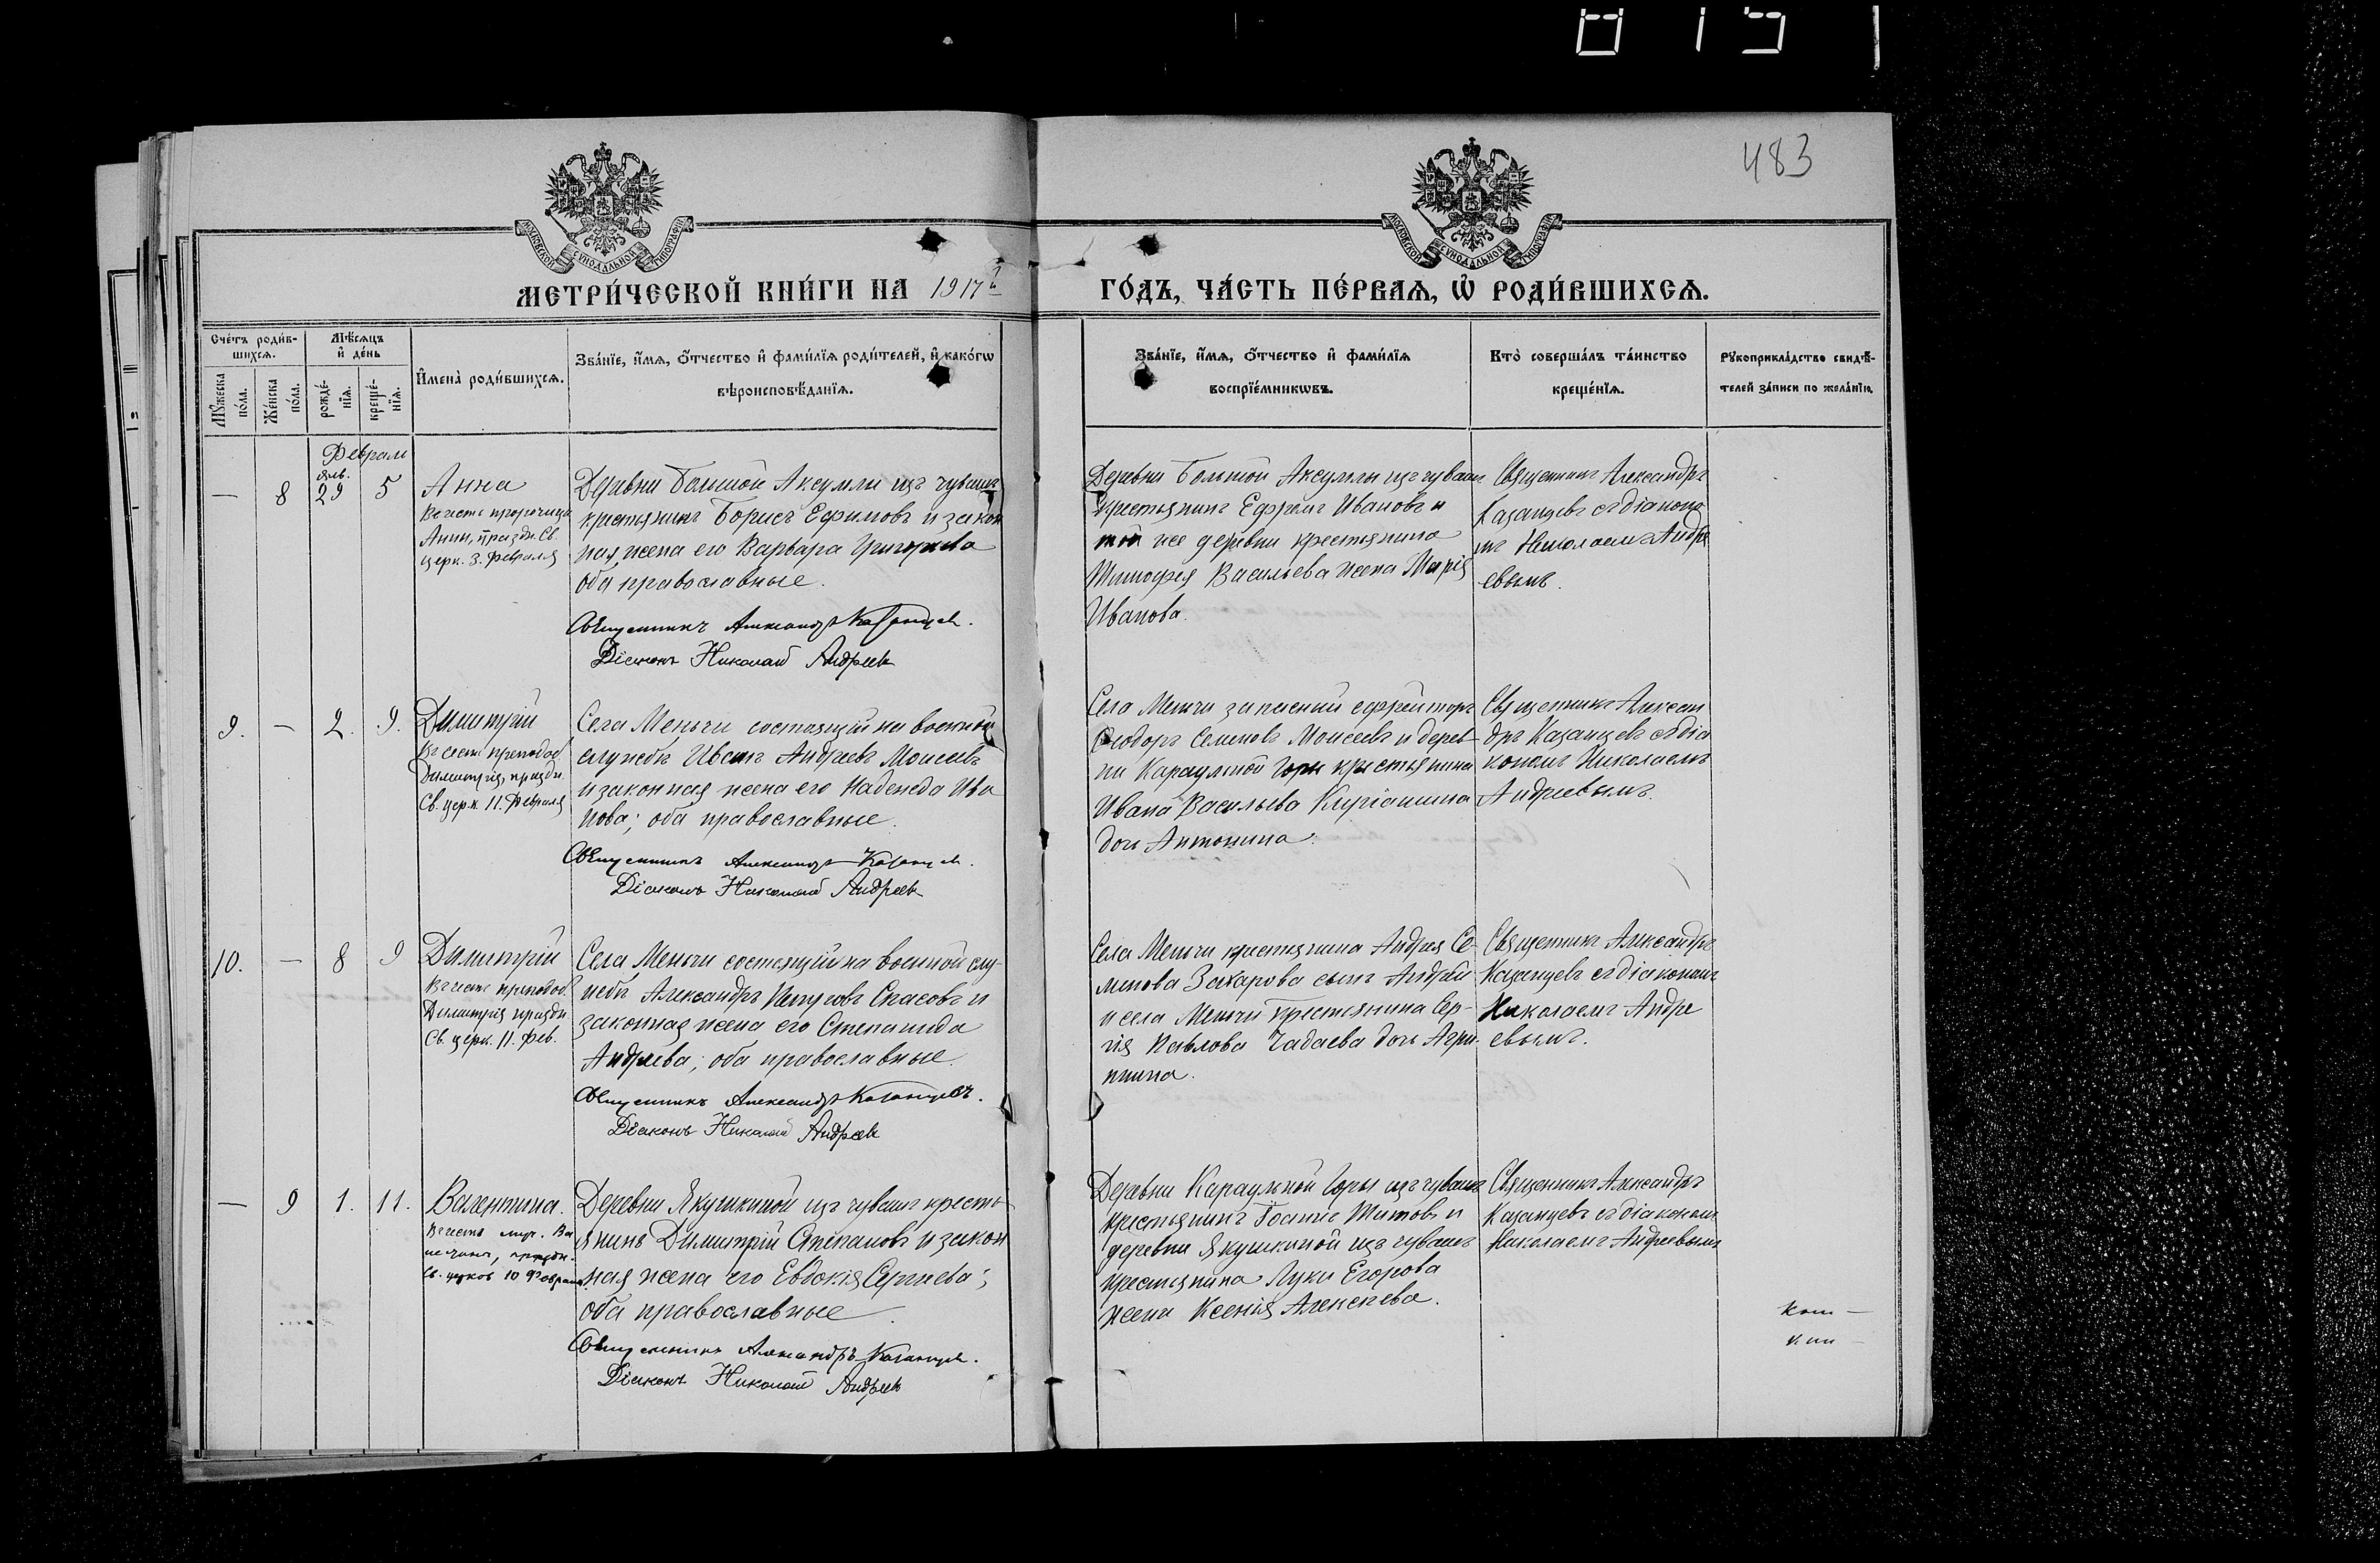 483
МОСКОВСКОЙ СѴНОДАЛЬНОЙ ТИПОГРАФІИ
МОСКОВСКОЙ СѴНОДАЛЬНОЙ ТИПОГРАФІИ
МЕТРИ́ЧЕСКОЙ КНИ́ГИ НА 1917 й
ГО́ДЪ, ЧА́СТЬ ПЕ́РВАѦ, Ѡ҆ РОДИ́ВШИХСѦ.
Сче́тъ роди́в-
шихсѧ.
Мѣ́сѧцъ
и҆ де́нь
Мꙋ́жеска
по́ла.
Же́нска
по́ла.
рожде́-
нїѧ.
креще́-
нїѧ.
И҆мена̀ роди́вшихсѧ.
Зва́нїе, и҆́мѧ, о҆́тчество и҆ фами́лїѧ роди́телей, и҆ како́гѡ
вѣроисповѣ́данїѧ.
Зва́нїе, и҆́мѧ, о҆́тчество и҆ фами́лїѧ
воспрїе́мникѡвъ.
Кто̀ соверша́лъ та́инство
креще́нїѧ.
Рꙋкоприкла́дство свидѣ́-
телей за́писи по жела́нїю.
Февраль
янв.
— 8 29 5
Анна
Въ честь пророчицы
Анны, праздн. Св.
церк. 3. Февраля
Деревни Большой Аксумлы изъ чувашъ
крестьянинъ Борисъ Ефимовъ и закон
ная жена его Варвара Григорьева
оба православные.
Священникъ Александръ Казанцевъ.
Діаконъ Николай Андреевъ
Деревни Большой Аксумлы изъ чувашъ
крестьянинъ Ефремъ Ивановъ и
той же деревни крестьянина
Тимофея Васильева жена Марія
Иванова.
Священникъ Александръ
Казанцевъ съ діаконо
мъ Николаемъ Андре
евымъ.
9. — 2. 9.
Димитрій
Въ честь преподоб
Димитрія, праздн
Св. церк. 11. Февраля
Села Меньчи состоящій на военной
службѣ Иванъ Андреевъ Моисеевъ
и законная жена его Надежда Ива
нова; оба православные.
Священникъ Александръ Казанцевъ.
Діаконъ Николай Андреевъ
Села Меньчи запасный ефрейторъ
Ѳеодоръ Семеновъ Моисеевъ и дерев
ни Караульной Горы крестьянина
Ивана Васильева
дочь Антонина.
Священникъ Алексан
дръ Казанцевъ съ діа
кономъ Николаемъ
Андреевымъ.
10. — 8 9
Димитрій
Въ честь преподоб
Димитрія праздн
Св. церк. 11. Фев.
Села Меньчи состоящій на военной слу-
жбѣ Александръ Петровъ Спасовъ и
законная жена его Степанида
Андреева; оба православные.
Священникъ Александръ Казанцевъ.
Діаконъ Николай Андреевъ
Села Меньчи крестьянина Андрея Се-
менова Захарова сынъ Андрей
и села Меньчи крестьянина Сер-
гія Павлова Чадаева дочь Агри-
пина.
Священникъ Александръ
Казанцевъ съ діакономъ
Николаемъ Андре
евымъ.
— 9 1. 11.
Валентина.
Въ честь муч. Ва
праздн.
Св. церков 10 Февраля
Деревни Якушкиной изъ чувашъ кресть-
янинъ Димитрій Степановъ и закон
ная жена его Евдокія Сергеева;
оба православные.
Священникъ Александръ Казанцевъ.
Діаконъ Николай Андреевъ
Деревни Караульной Горы изъ чувашъ
крестьянинъ Іоаннъ Титовъ и
деревни Якушкиной изъ чувашъ
крестьянина Луки Егорова
жена Ксенія Алексеева.
Священникъ Александръ
Казанцевъ съ діакономъ
Николаемъ Андреевымъ